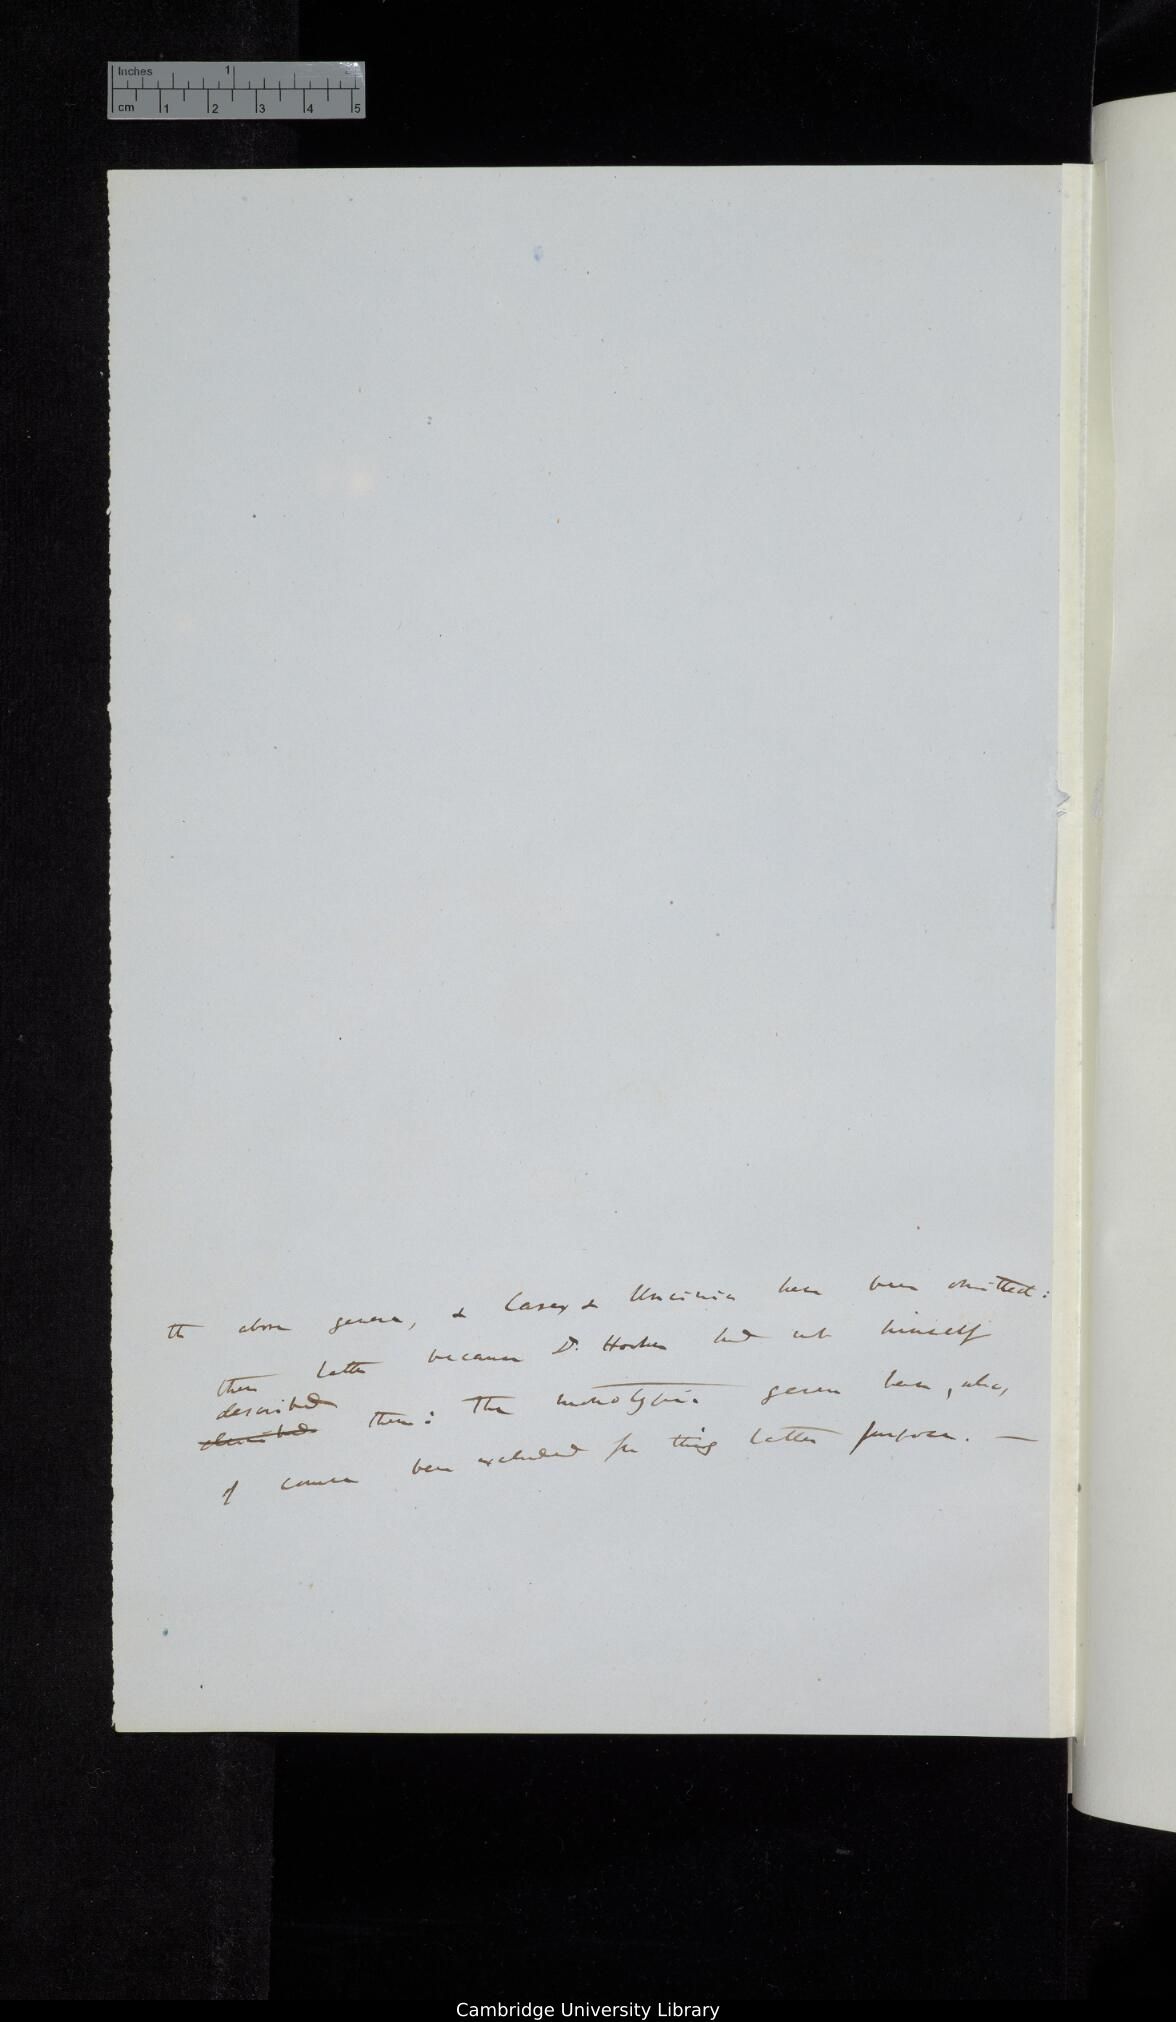 Inches 1 2
cm 1 2 3 4 5
the above genera, & Carex & Uncinia have been omitted:
these latter because Dr. Hooker had not himself
described
described them: The monotypic genera have, also,
of course been excluded for this latter purpose. —
Cambridge University Library